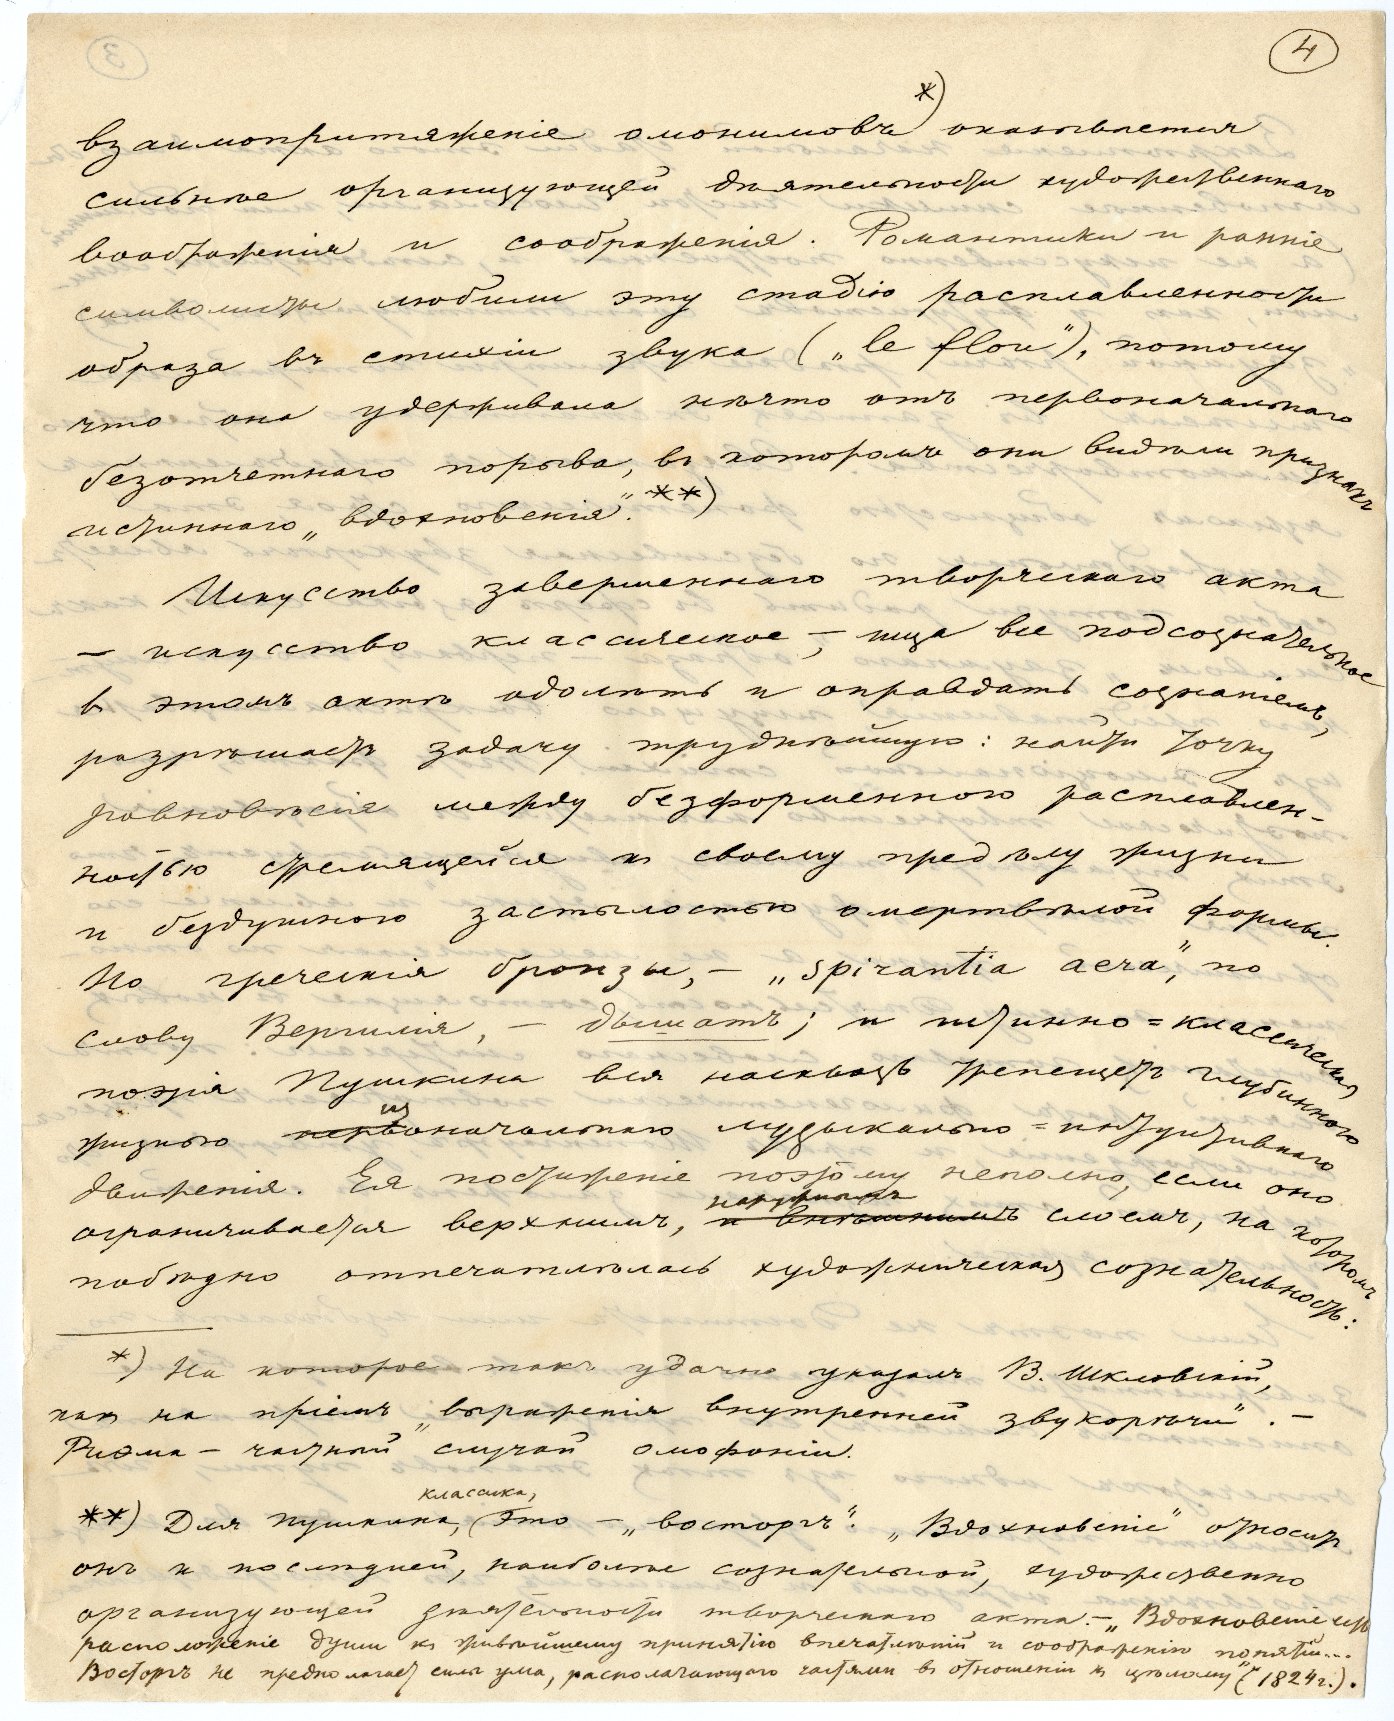 4
взаимопритяженіе омонимовъ *) оказывается
сильнѣе организующей дѣятельности художественнаго
воображенія и соображенія. Романтики и ранніе
символисты любили эту стадію расплавленности
образа въ стихіи звука („le flou“), потому
что она удерживала нѣчто отъ первоначальнаго
безотчетнаго порыва, въ которомъ они видѣли признакъ
истиннаго „вдохновенія“. **)
Искусство завершеннаго творческаго акта
— искусство классическое —, ища все подсознательное
въ этомъ актѣ одолѣть и оправдать сознаніемъ,
разрѣшаетъ задачу труднѣйшую: найти точку
равновѣсія между безформенною расплавлен-
ностью стремящейся къ своему предѣлу жизни
и бездушною застылостью омертвѣлой формы.
Но греческія бронзы, — „spirantia aera“, по
слову Вергилія, — дышатъ; и истинно=классическая
поэзія Пушкина вся насквозь трепещетъ глубинною
жизнью изначальнаго музыкально=интуитивнаго
движенія. Ея постиженіе поэтому неполно, если оно
ограничивается верхнимъ, наружнымъ слоемъ, на которомъ
побѣдно отпечатлѣлась художническая сознательность:
*) На которое такъ удачно указалъ В. Шкловскій,
какъ на пріемъ „выраженія внутренней звукорѣчи“. —
Риѳма — частный случай омофоніи.
**) Для Пушкина, классика, это — „восторгъ“. „Вдохновеніе“ относитъ
онъ къ послѣдней, наиболѣе сознательной, художественно
организующей дѣятельности творческаго акта. — „Вдохновеніе есть
расположеніе души къ живѣйшему принятію впечатлѣній и соображенію понятій...
Восторгъ не предполагаетъ силы ума, располагающаго частями въ отношеніи къ цѣлому“ (1824 г.).